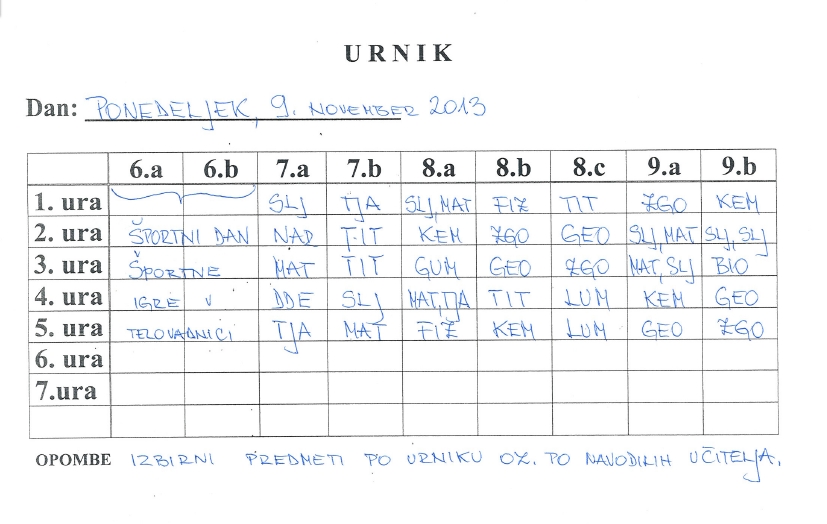 URNIK
Dan: PONEDELJEK, 9. NOVEMBER 2013
6.a 6.b 7.a 7.b 8.a 8.b 8.c 9.a 9.b
1. ura SLJ TJA SLJ,MAT FIZ TIT ZGO KEM
2. ura ŠPORTNI DAN NAD TIT KEM ZGO GEO SLJ,MAT SLJ,SLJ
3. ura ŠPORTNE MAT TIT GUM GEO ZGO MAT,SLJ BIO
4. ura IGRE V DDE SLJ MAT,TJA TIT LUM KEM GEO
5. ura TELOVADNICI TJA MAT FIZ KEM LUM GEO ZGO
6. ura
7.ura
OPOMBE IZBIRNI PREDMETI PO URNIKU OZ. PO NAVODILIH UČITELJA.